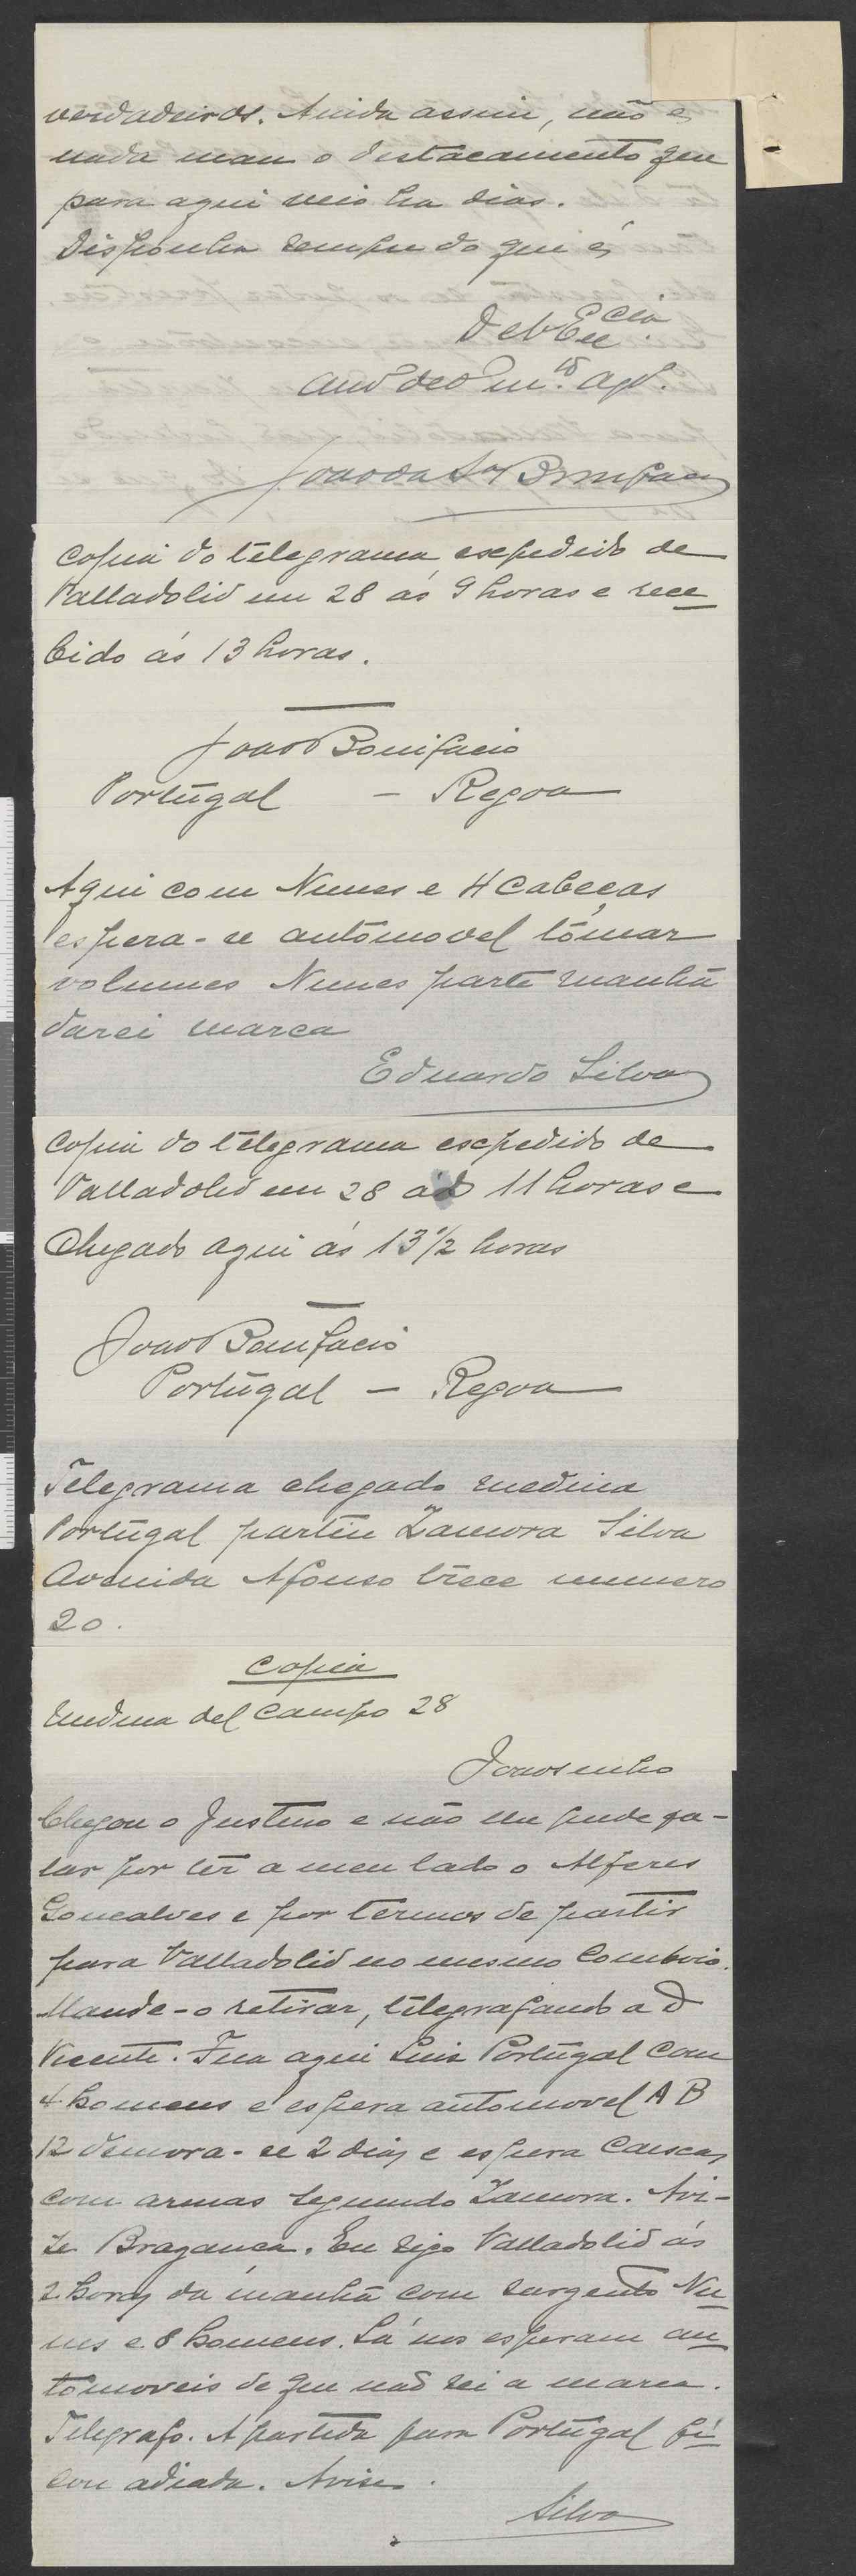 verdadeiros. Ainda assim, não é
nada mau o destacamento que
para aqui veio ha dias.
Disponha sempre do que é
De V. Ex.cia
am.o ded.o m.to agr.
João da S.a Bonifacio
Copia do telegrama expedido de
Valladolid em 28 ás 9 horas e rece
bido ás 13 horas.
João Bonifacio
Portugal - Regoa
Aqui com Nunes e 4 Cabeças
espera-se automovel tomar
volumes Nunes parte manhã
darei marca
Eduardo Silva
Copia do telegrama expedido de
Valladolid em 28 ás 11 horas e
Chegado aqui ás 13 1/2 horas
João Bonifacio
Portugal - Regoa
Telegrama chegado medina
Portugal partiu Zamora Silva
Avenida Afonso trece numero
20.
Copia
Medina del Campo 28
Joãosinho
Chegou o Justino e não me pude fa-
lar por ter a meu lado o Alferes
Gonçalves e por termos de partir
para Valladolid no mesmo Comboio.
Mande-o retirar, telegrafando a D
Vicente. Fica aqui Luis Portugal com
4 homens e espera automovel A B
12 demora-se 2 dias e espera Caixas
com armas segundo Zamora. Avi-
se Bragança. Eu sigo Valladolid ás
2 horas da manhã com sargento Nu
nes e 8 homens. Lá nos esperam au
tomoveis de que não sei a marca.
Telegrafo. A partida para Portugal fi
cou adiada. Avise.
Silva